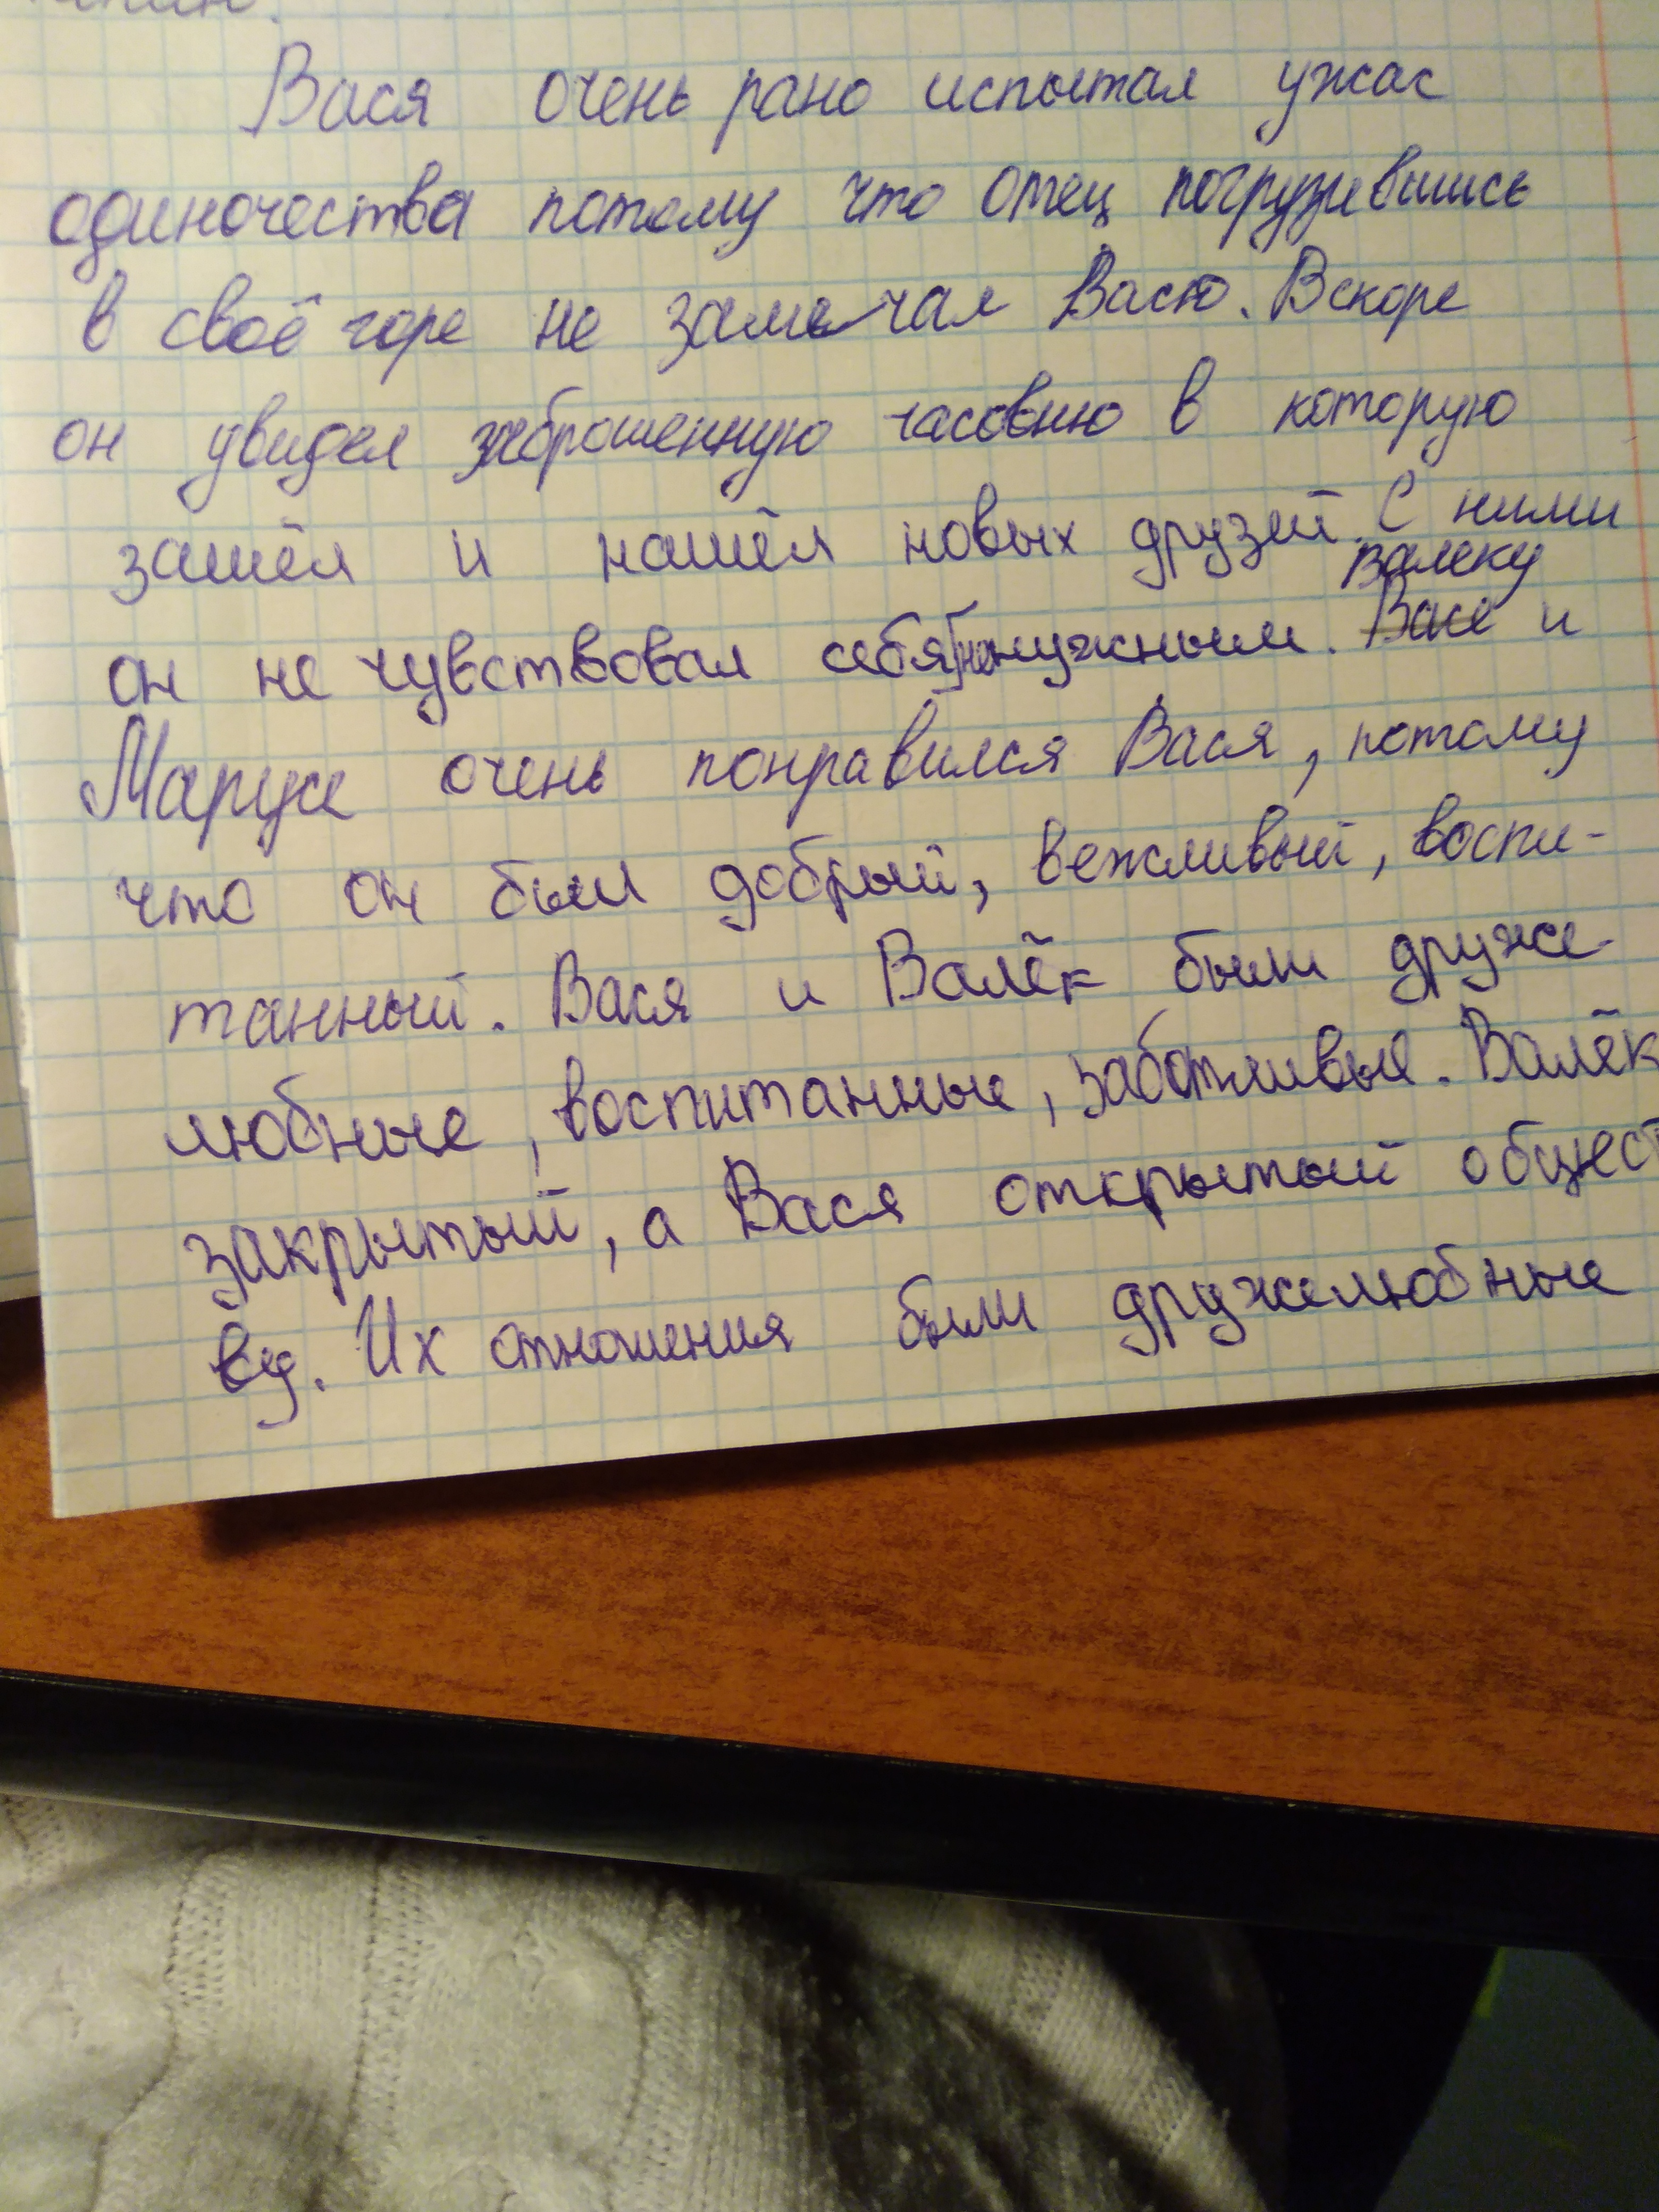 Вася очень рано испытал ужас
одиночества потому что отец погрузившись
в своё горе не замечал Васю. Вскоре
он увидел заброшенную часовню в которую
зашёл и нашёл новых друзей. С ними
Валеку
он не чувствовал себя ненужным. Васе и
Марусе очень понравился Вася, потому
что он был добрый, вежливый, воспи-
танный. Вася и Валёк были друже-
любные, воспитанные, заботливые. Валёк
закрытый, а Вася открытый общест
ву. Их отношения были дружелюбные